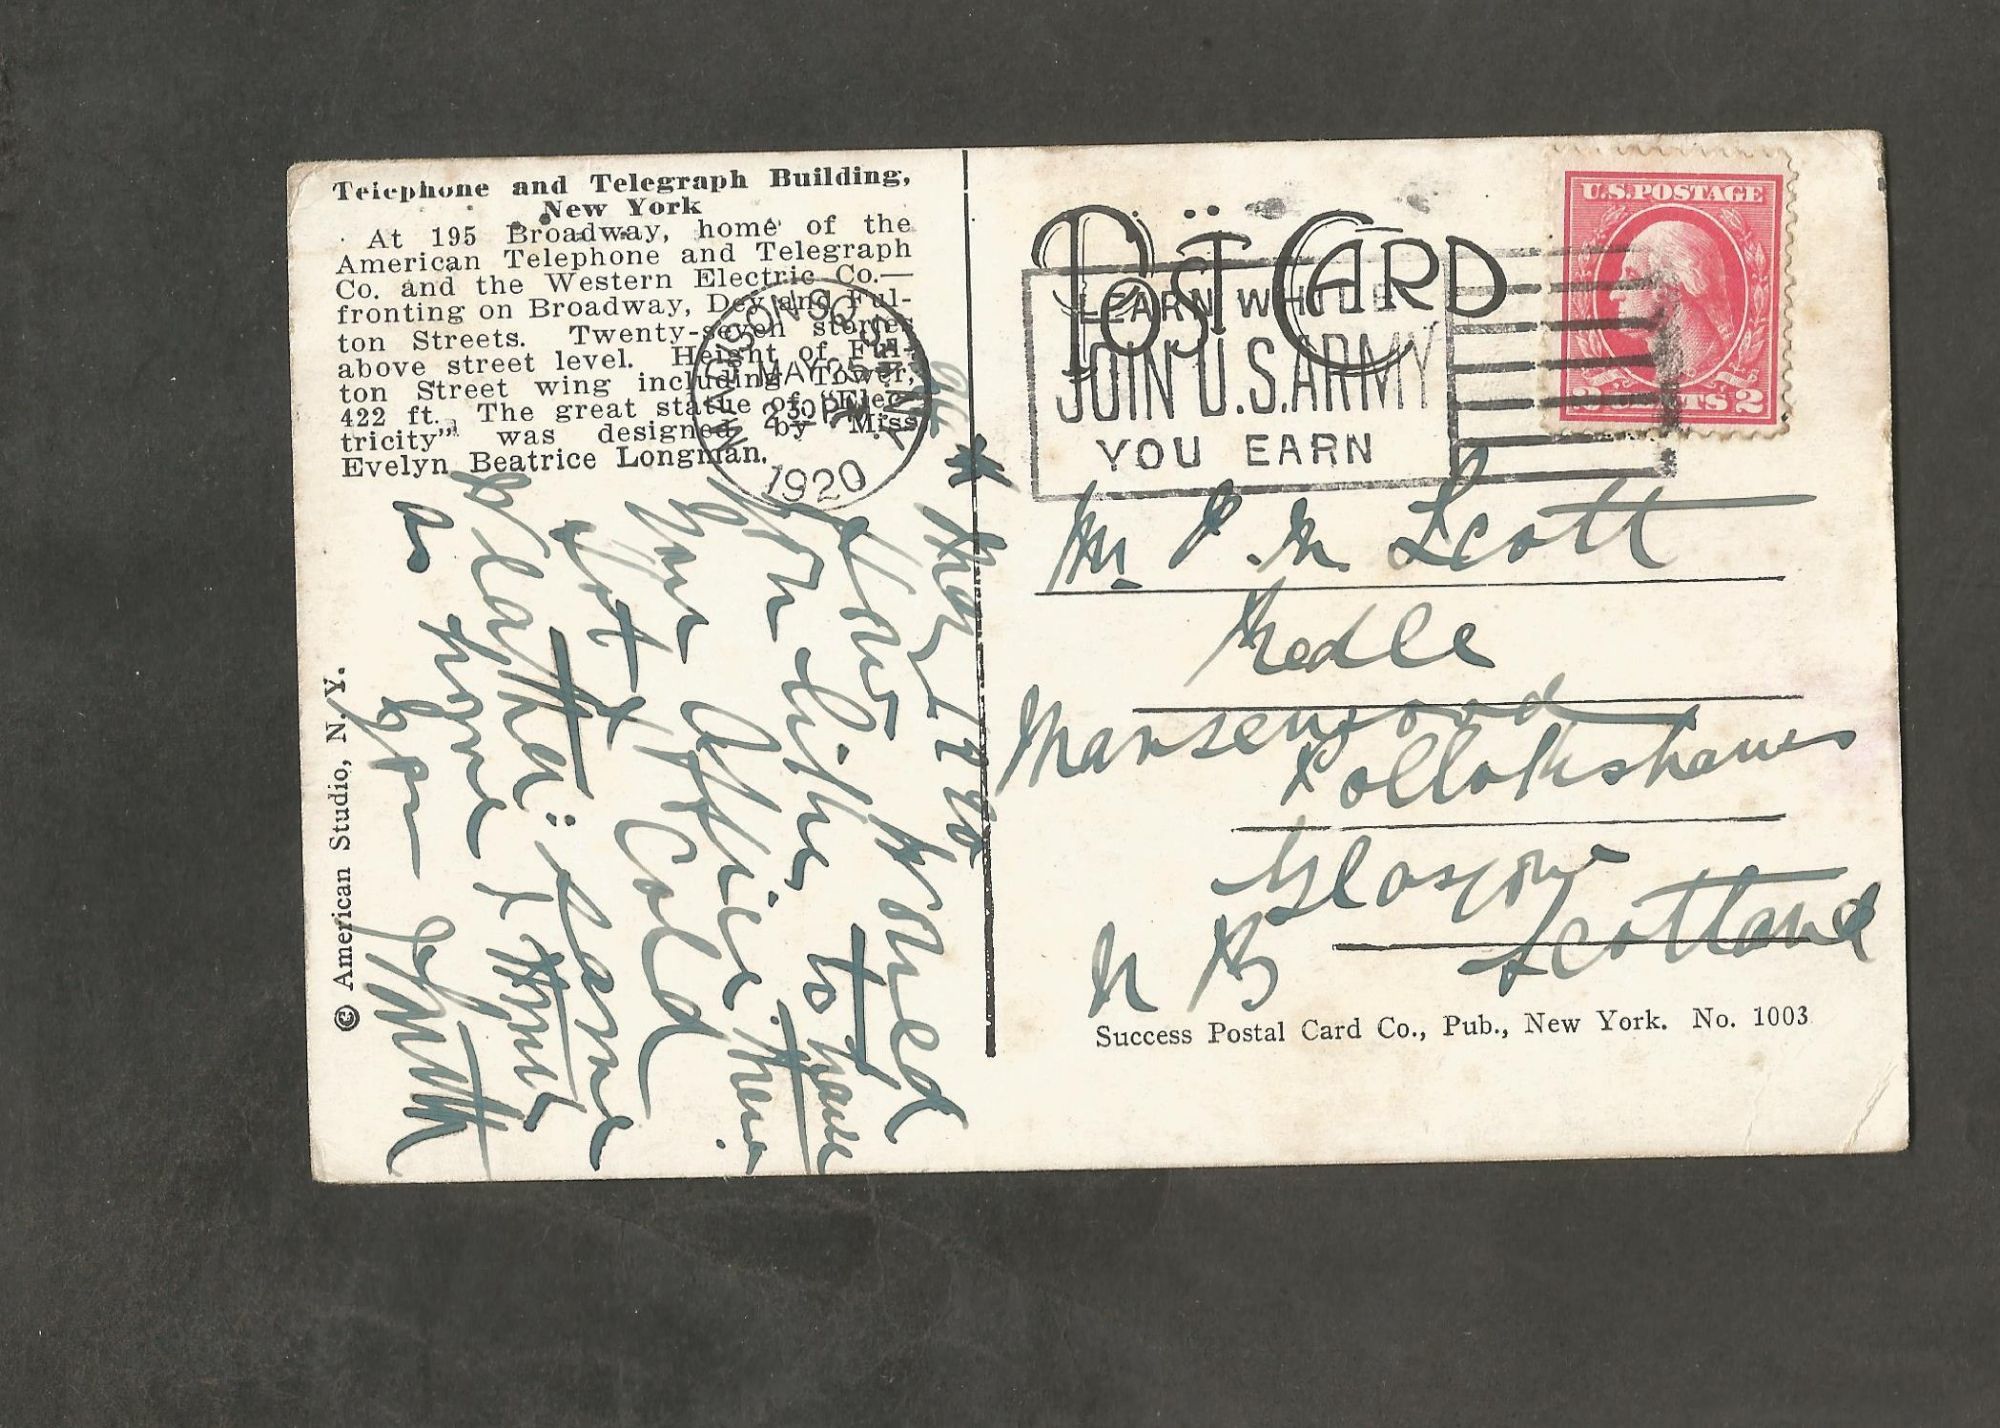 Telephone and Telegraph Building,
New York
At 195 Broadway, home of the
American Telephone and Telegraph
Co. and the Western Electric Co.—
fronting on Broadway, Dey and Ful-
ton Streets. Twenty-seven stories
above street level. Height of Ful-
ton Street wing including Tower,
422 ft. The great statue of "Elec-
tricity" was designed by Miss
Evelyn Beatrice Longman.
© American Studio, N. Y.
May 1920
How
you like to have
your office here
Cold
same
as home
POST CARD
MADISON SQ. STA.
MAY 25
2 30 PM
N.Y.
1920
LEARN WHILE
JOIN U.S. ARMY
YOU EARN
U.S. POSTAGE
2 CENTS 2
Mr J. M. Scott
Nedle
Mansewood
Pollokshaws
Glasgow
N B Scotland
Success Postal Card Co., Pub., New York. No. 1003